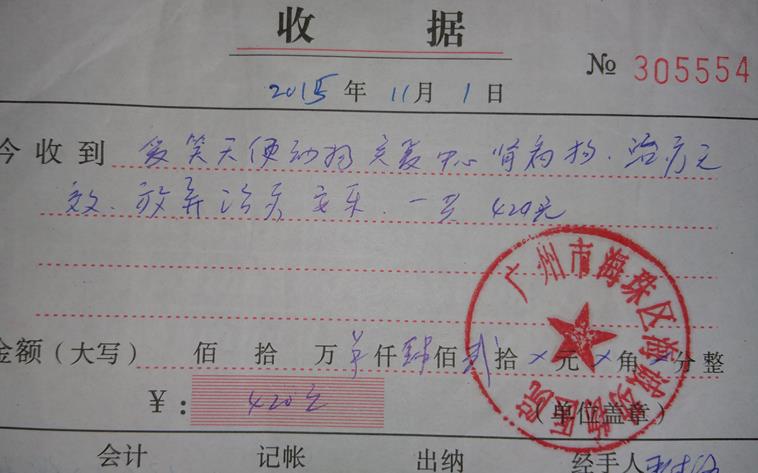 收据
№ 305554
2015年 11月 1日
今收到 爱笑天使动物关爱中心肾病狗、治疗无
效、放弃治疗安乐、一共 420元
广州市海珠区 动物医院
金额（大写） 佰 拾 万 仟 肆佰 贰拾 元 角 分整
¥：420元
（单位盖章）
会计 记帐 出纳 经手人